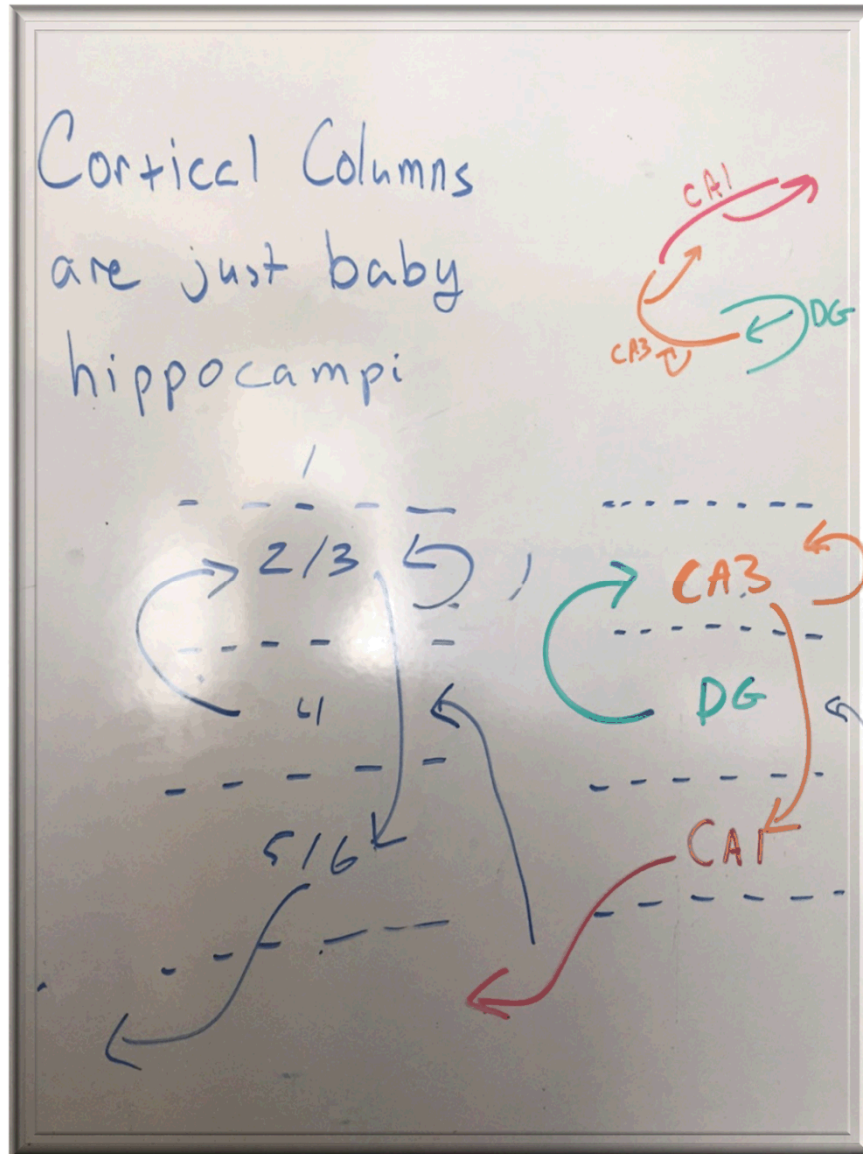 Cortical Columns
are just baby
hippocampi
CA1
DG
CA3
1
2/3
4
5/6
CA3
DG
CA1